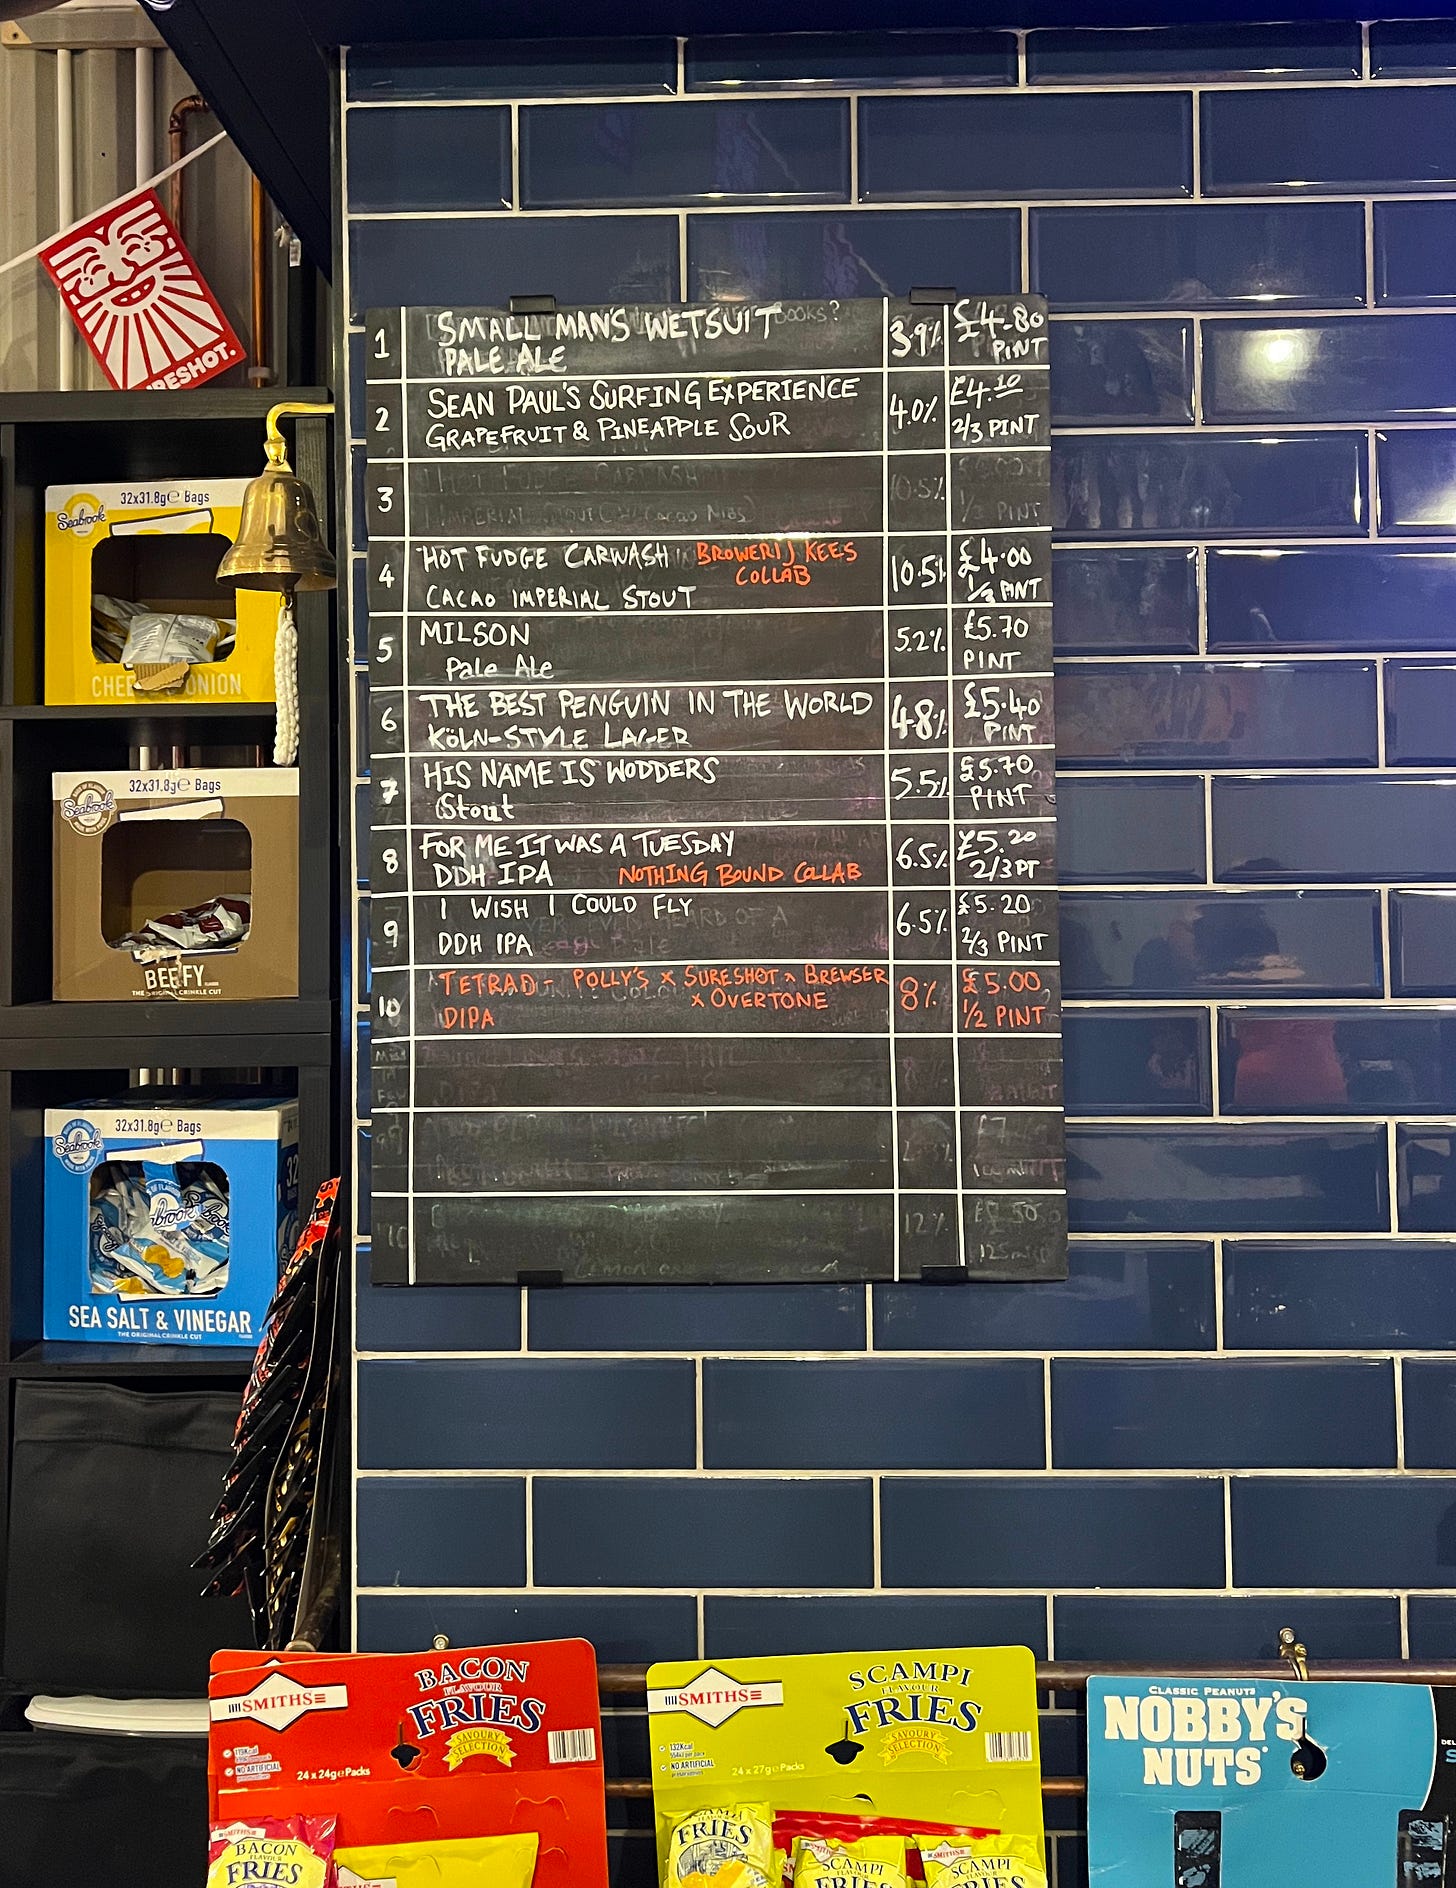 1
SMALL MAN'S WETSUIT
BOOKS?
PALE ALE
3.9%
£4-80
PINT
2
SEAN PAUL'S SURFING EXPERIENCE
GRAPEFRUIT & PINEAPPLE SOUR
4.0%
£4.10
2/3 PINT
3
HOT FUDGE CARWASH
IMPERIAL
Cacao Nibs)
10.5%
PINT
4
HOT FUDGE CARWASH BROWERIJ KEES
COLLAB
CACAO IMPERIAL STOUT
10.5%
£4.00
1/3 PINT
5
MILSON
Pale Ale
5.2%
£5.70
PINT
6
THE BEST PENGUIN IN THE WORLD
KÖLN-STYLE LAGER
4.8%
£5.40
PINT
7
HIS NAME IS WODDERS
Stout
5.5%
£5.70
PINT
8
FOR ME IT WAS A TUESDAY
DDH IPA NOTHING BOUND COLLAB
6.5%
£5.20
2/3 PT
9
I WISH I COULD FLY
DDH IPA
6.5%
£5.20
2/3 PINT
10
TETRAD - POLLY'S x SURESHOT x BREWSER
x OVERTONE
DIPA
8%
£5.00
1/2 PINT
12%
RESHOT.
32x31.8g℮ Bags
Seabrook
CHEE ONION
32x31.8g℮ Bags
Seabrook
BEEFY
THE ORIGINAL CRINKLE CUT
32x31.8g℮ Bags
Seabrook
SEA SALT & VINEGAR
THE ORIGINAL CRINKLE CUT
SMITHS
BACON
FLAVOUR
FRIES
SAVOURY
SELECTION
119Kcal
NO ARTIFICIAL
24 x 24g℮ Packs
SMITHS
BACON
FLAVOUR
FRIES
SMITHS
SMITHS
SCAMPI
FLAVOUR
FRIES
SAVOURY
SELECTION
132Kcal
NO ARTIFICIAL
24 x 27g℮ Packs
FRIES
SMITHS
SCAMPI
FLAVOUR
FRIES
SMITHS
SCAMPI
FLAVOUR
FRIES
CLASSIC PEANUTS
NOBBY'S
NUTS